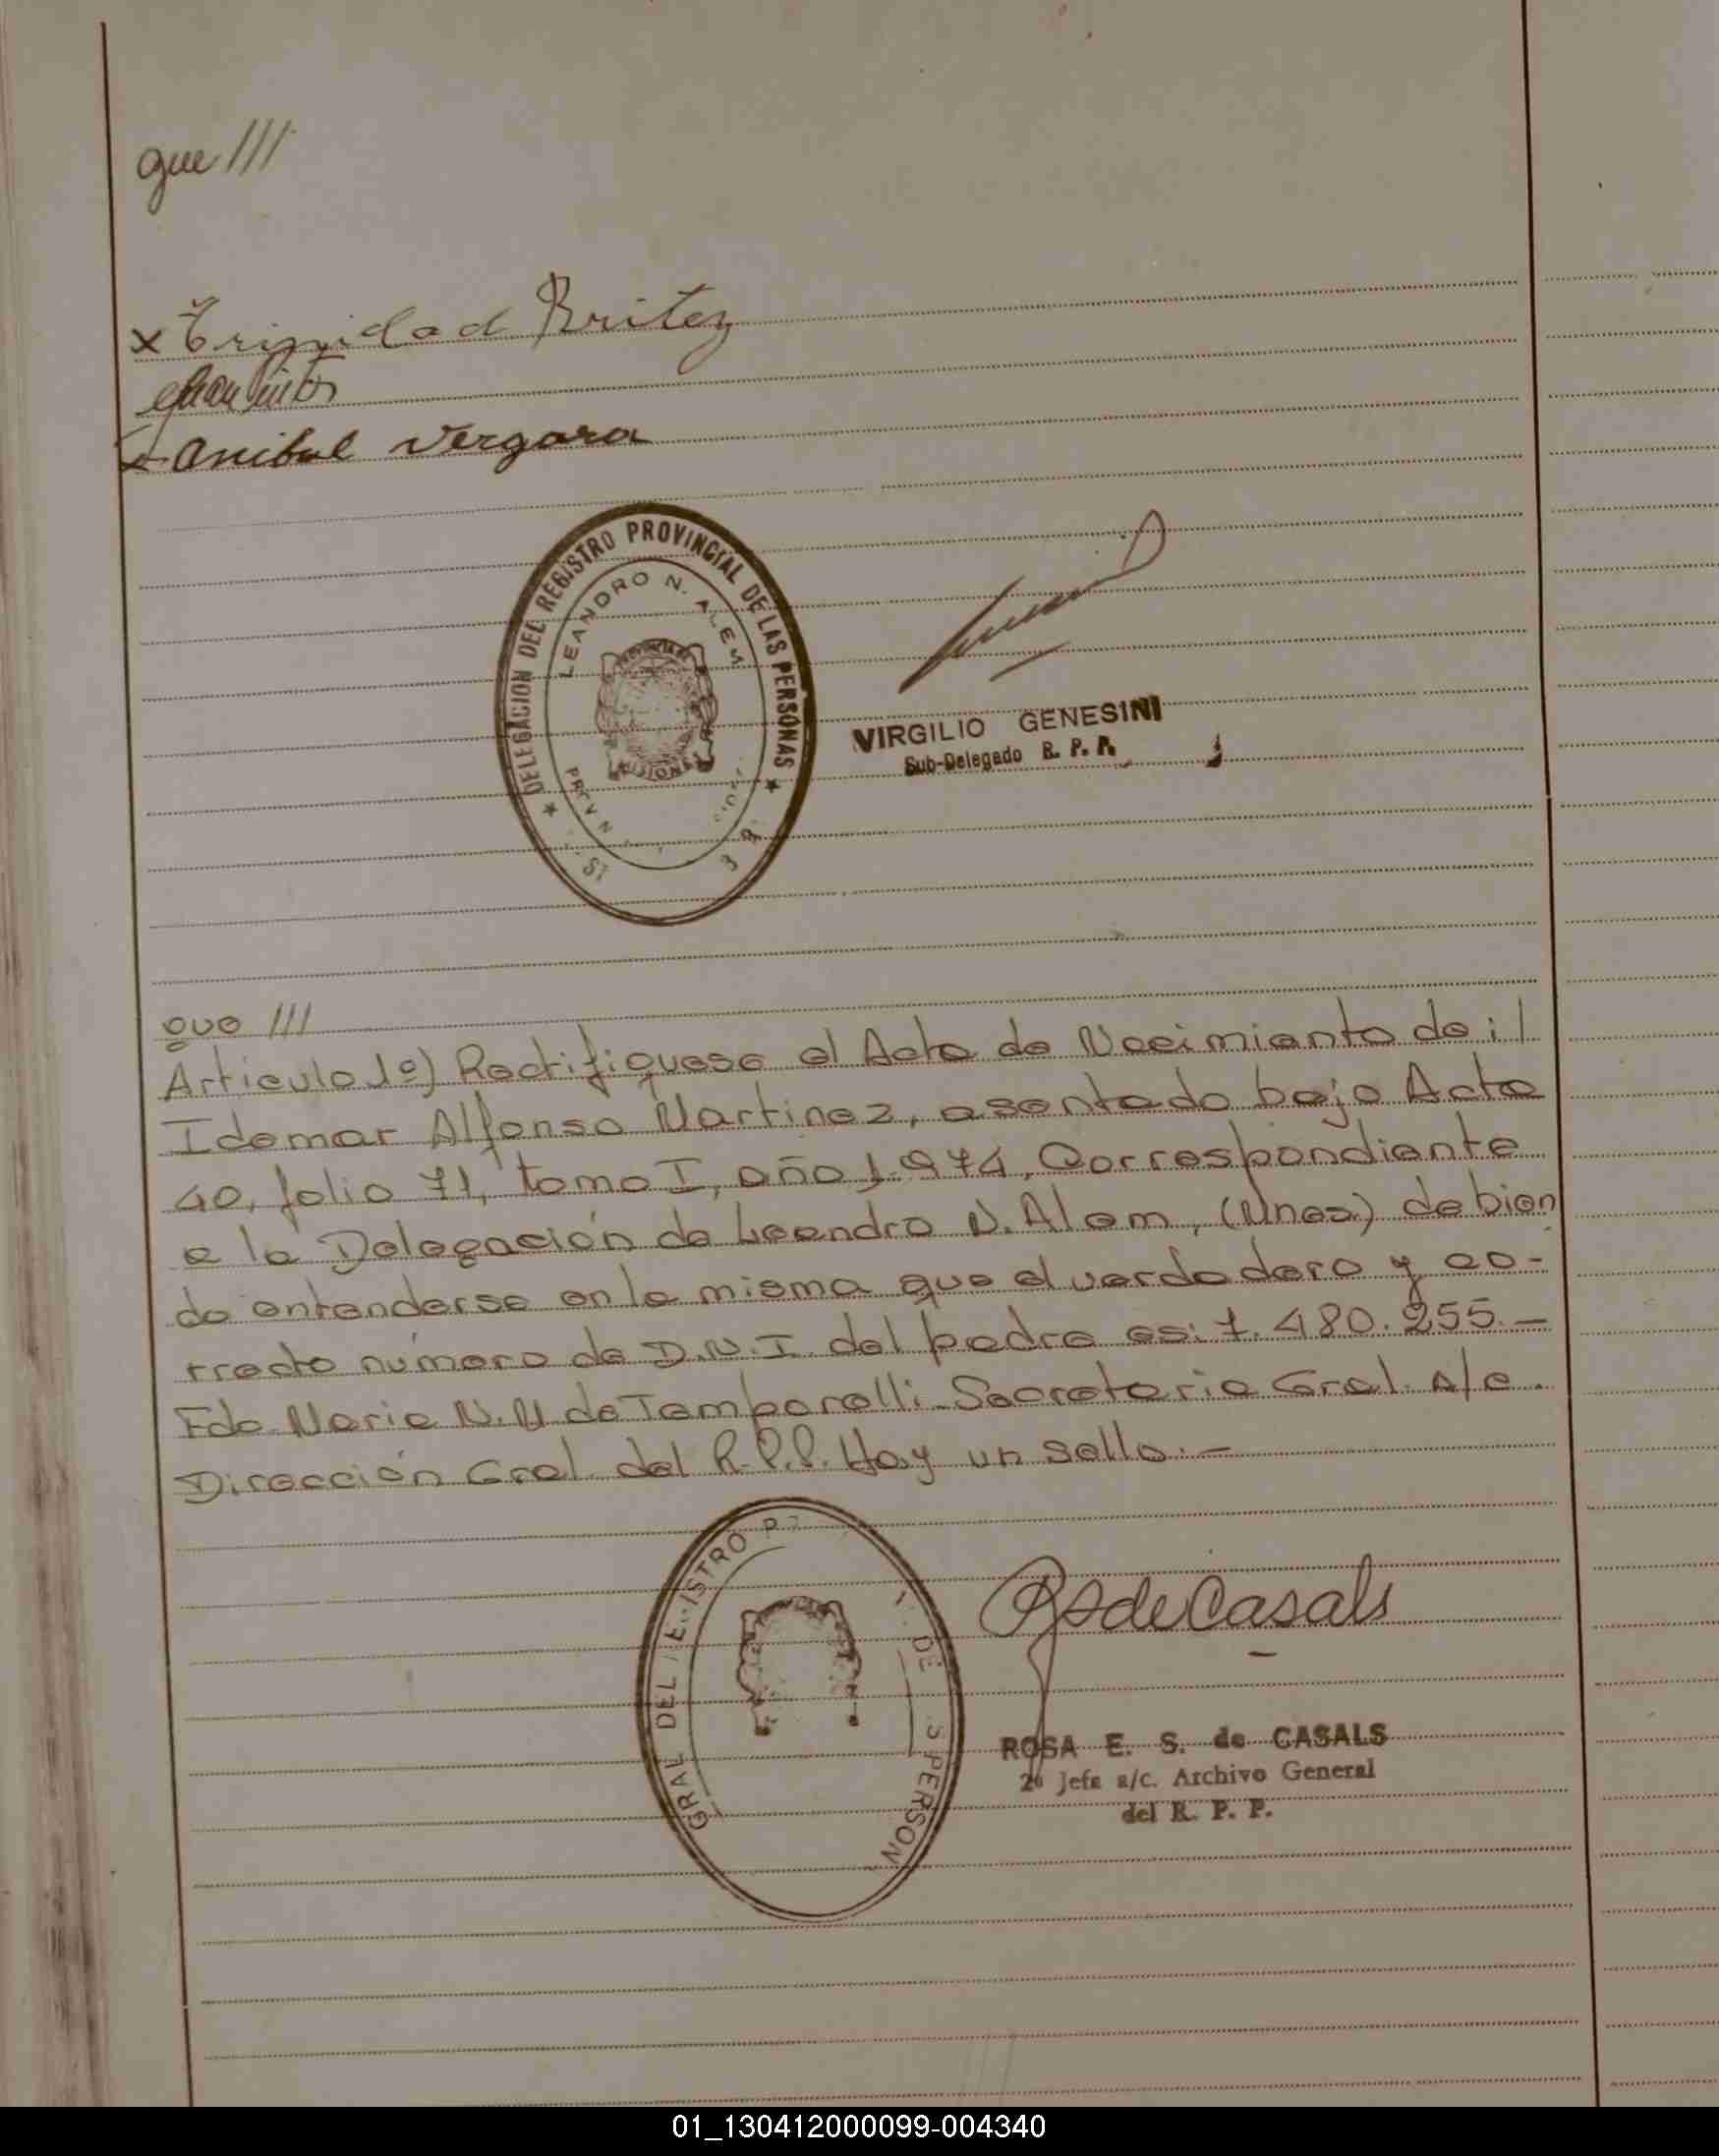 que ///
x Trinidad Britez
x Anibal Vergara
DELEGACION DEL REGISTRO PROVINCIAL DE LAS PERSONAS
LEANDRO N. ALEM
MISIONES
VIRGILIO GENESINI
Sub-Delegado R. P. P.
que ///
Articulo 1º) Rectifiquese el Acta de Nacimiento de://
Idemar Alfonso Martinez, asentado bajo Acta
40, folio 71, tomo I, año 1.974, Correspondiente
a la Delegación de Leandro N. Alem, (Mnes.) debien
do entenderse en la misma que el verdadero y co-
rrecto número de D.N.I. del padre es: 7.480.255.—
Fdo. Maria N. M de Temporelli - Secretaria Gral. A/c.
Dirección Gral. del R.P.P. Hay un sello.—
GRAL DEL E ISTRO P DE S PERSON
RSdeCasals
ROSA E. S. de CASALS
2º Jefe a/c. Archivo General
del R. P. P.
01_130412000099-004340